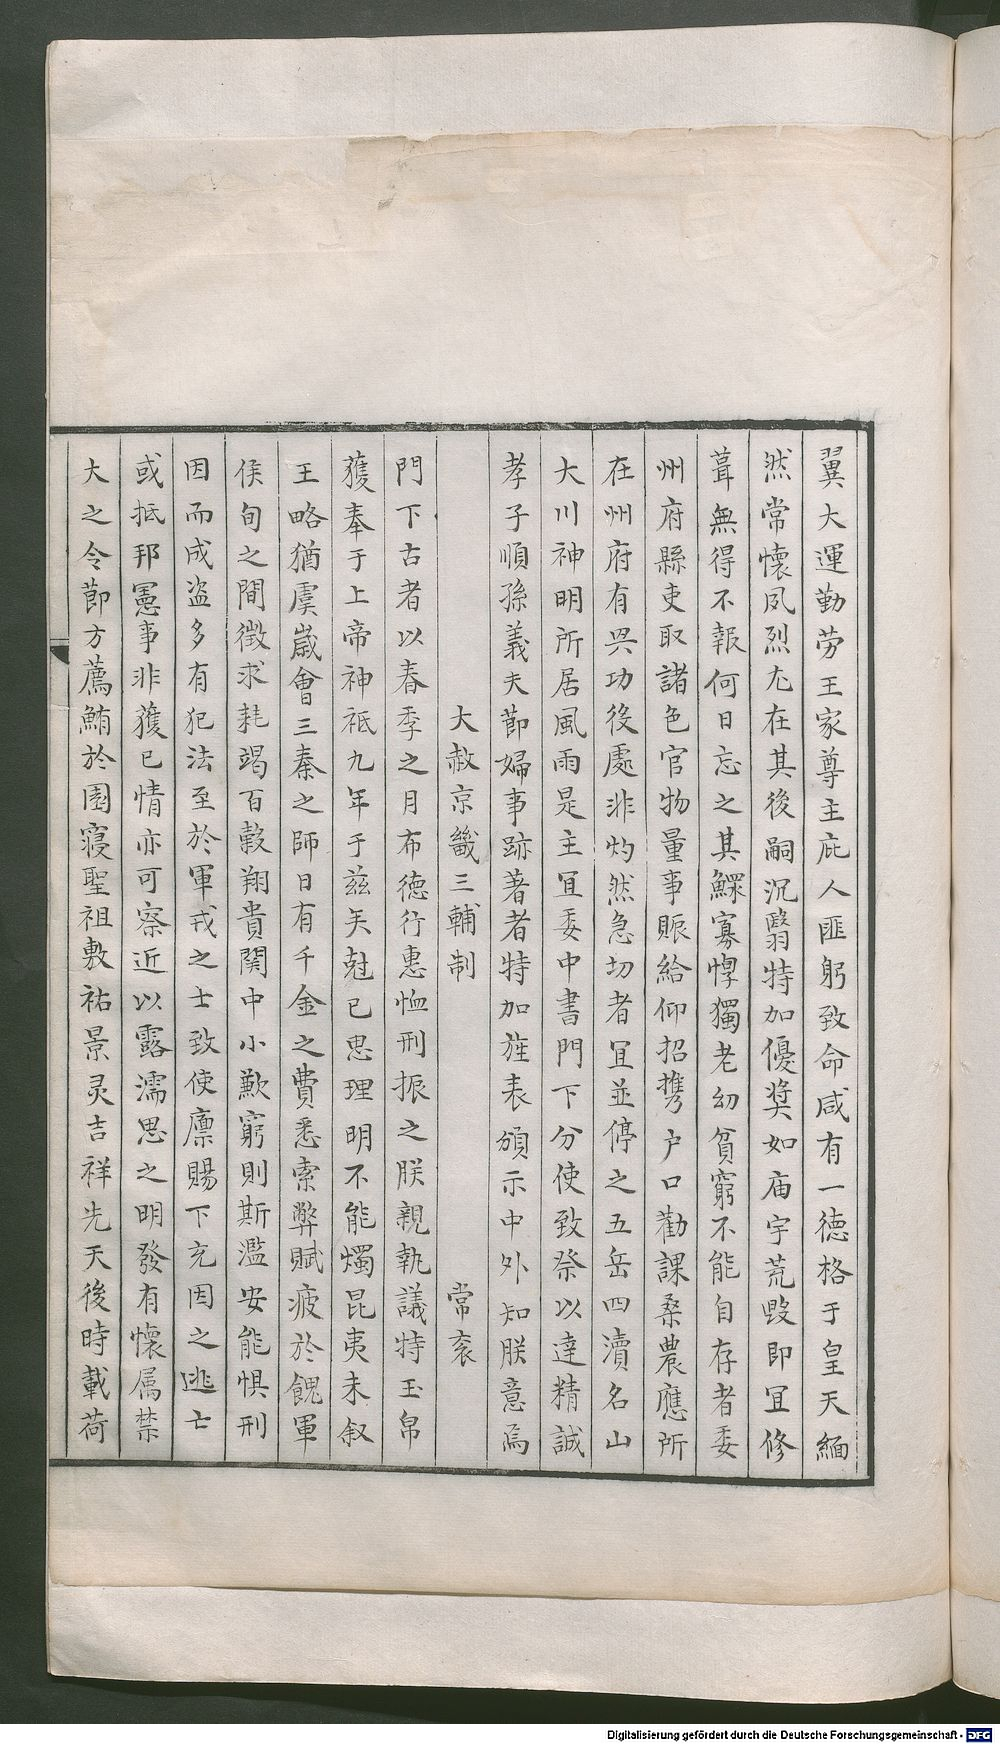 翼大運勤劳王家尊主庇人匪躬致命咸有一德格于皇天緬
然常懷夙烈尤在其後嗣沉翳特加優奨如庙宇荒毁即冝修
葺無得不報何日忘之其鰥寡惸獨老幼貧窮不能自存者委
州府縣吏取諸色官物量事賑給仰招携户口勸課桑農應所
在州府有兴功役處非灼然急切者冝並停之五岳四瀆名山
大川神明所居風雨是主冝委中書門下分使致祭以達精誠
孝子順孫義夫節婦事跡著者特加旌表頒示中外知朕意焉
大赦京畿三輔制　常衮
門下古者以春季之月布德行惠恤刑振之朕親執議特玉帛
獲奉于上帝神祇九年于兹矣尅已思理明不能燭昆夷未叙
王略猶虞歳會三秦之師日有千金之費悉索弊賦疲於餽軍
侯旬之間徴求耗竭百穀翔貴関中小歉窮則斯濫安能惧刑
因而成盗多有犯法至於軍戎之士致使廪賜下充因之逃亡
或抵邦憲事非獲已情亦可察近以露濡思之明發有懷属禁
大之令節方薦鮪於園寝聖祖敷祐景灵吉祥先天後時載荷
Digitalisierung gefördert durch die Deutsche Forschungsgemeinschaft - DFG